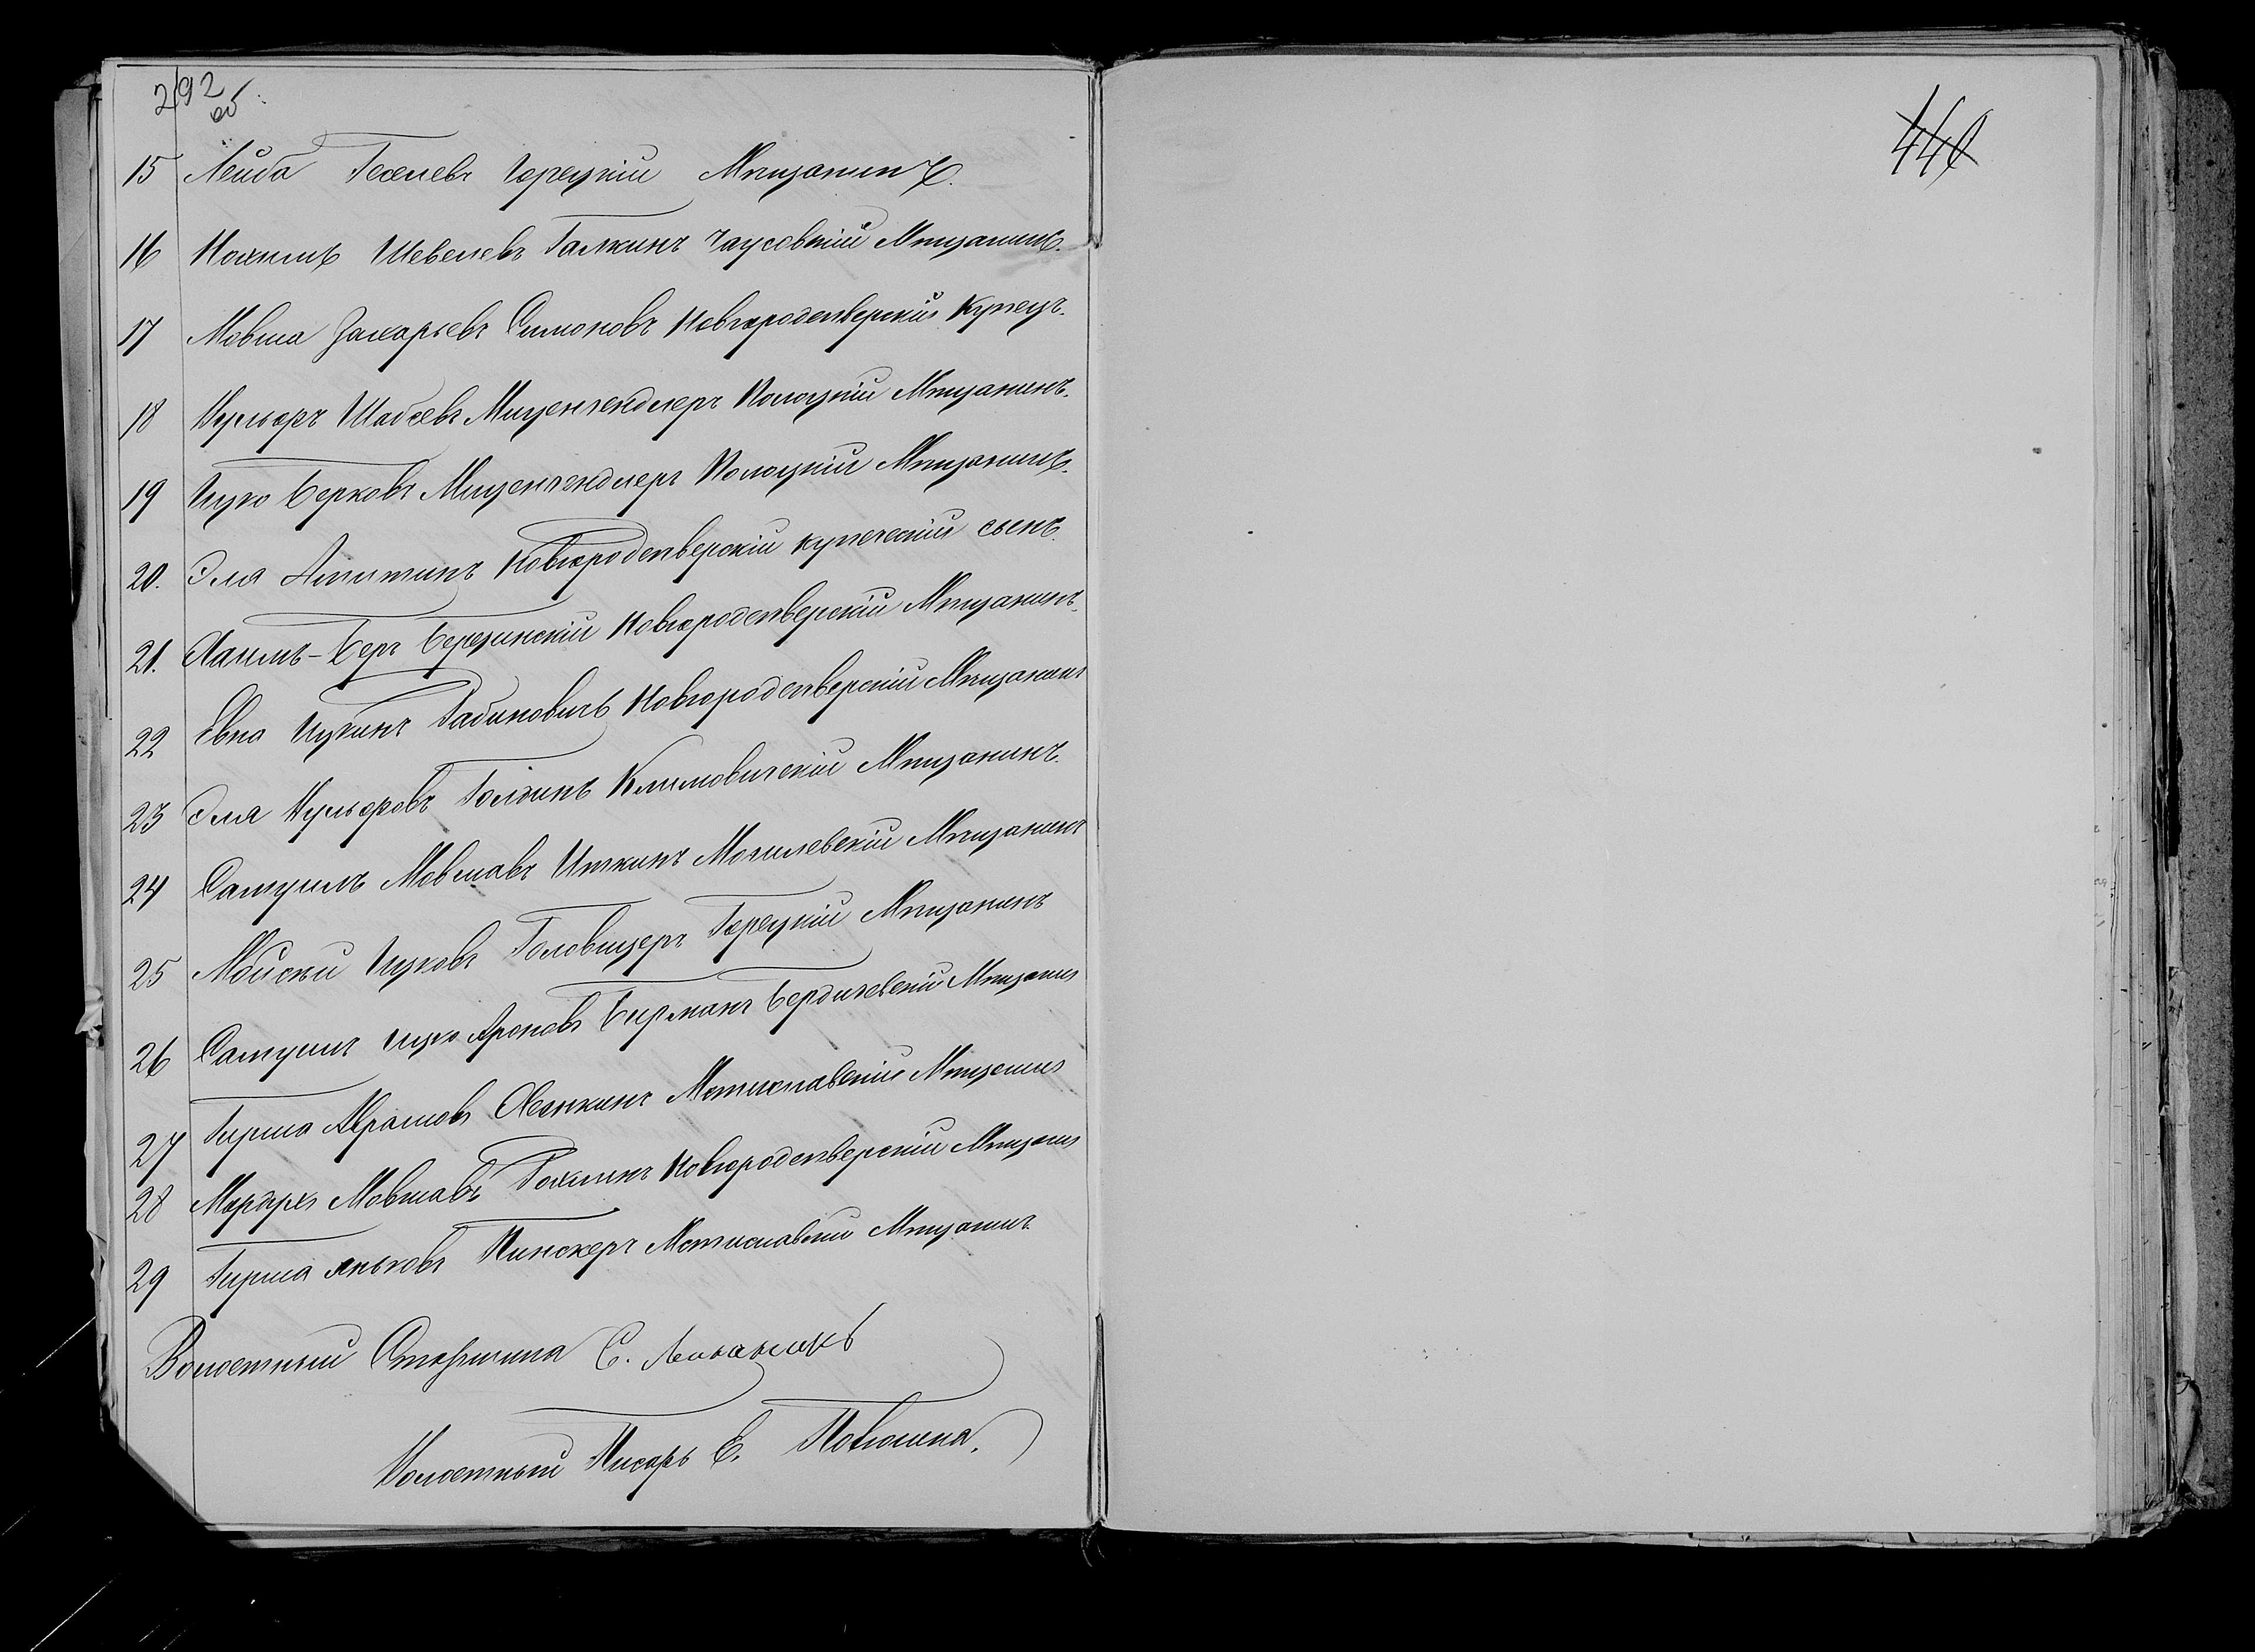 292
об.
440
15 Лейба Гецелевъ Горецкій Мѣщанинъ.
16 Нохимъ Шевелевъ Галкинъ Чаусовскій Мѣщанинъ.
17 Мовша Захарьевъ Симоновъ Новгородсѣверскій Купецъ.
18 Нусьоръ Шабсевъ Миценгендлеръ Полоцкій Мѣщанинъ.
19 Ицко Берковъ Миценгендлеръ Полоцкій Мѣщанинъ.
20. Эля Новгородсѣверскій купеческій сынъ.
21. Хаимъ-Беръ Березинскій Новгородсѣверскій Мѣщанинъ.
22 Евна Ицкинъ Рабиновичъ Новгородсѣверскій Мѣщанинъ
23 Эля Голдинъ Климовичскій Мѣщанинъ.
24 Самуилъ Мовшавъ Иткинъ Могилевскій Мѣщанинъ
25 Мойсей Ицковъ Головщеръ Горецкій Мѣщанинъ
26 Самуилъ Ицко Ароновъ Бирманъ Бердичевскій Мѣщанин
27 Гирша Абрамовъ Мстиславскій Мѣщанин
28 Мордухъ Мовшавъ Рохлинъ Новгородсѣверскій Мѣщанин
29 Гирша Яньковъ Пинскеръ Мстиславский Мѣщанин.
Волостный Старшина С.
Волостный Писарь Е.